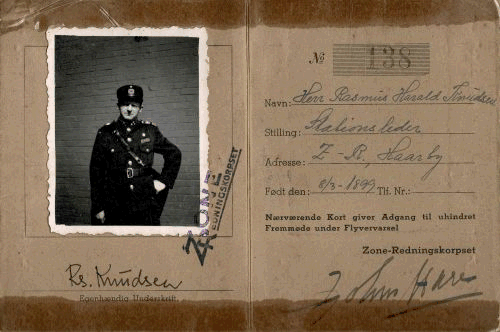 № 138
Navn: Herr Rasmus Harald Knudsen
Stilling: Stationsleder
Adresse: Z-R, Haarby
Født den: 8/3-1899 Tlf. Nr.:
Nærværende Kort giver Adgang til uhindret
Fremmøde under Flyvervarsel
Zone-Redningskorpset
ZONE
REDNINGSKORPSET
Rs. Knudsen
Egenhændig Underskrift.